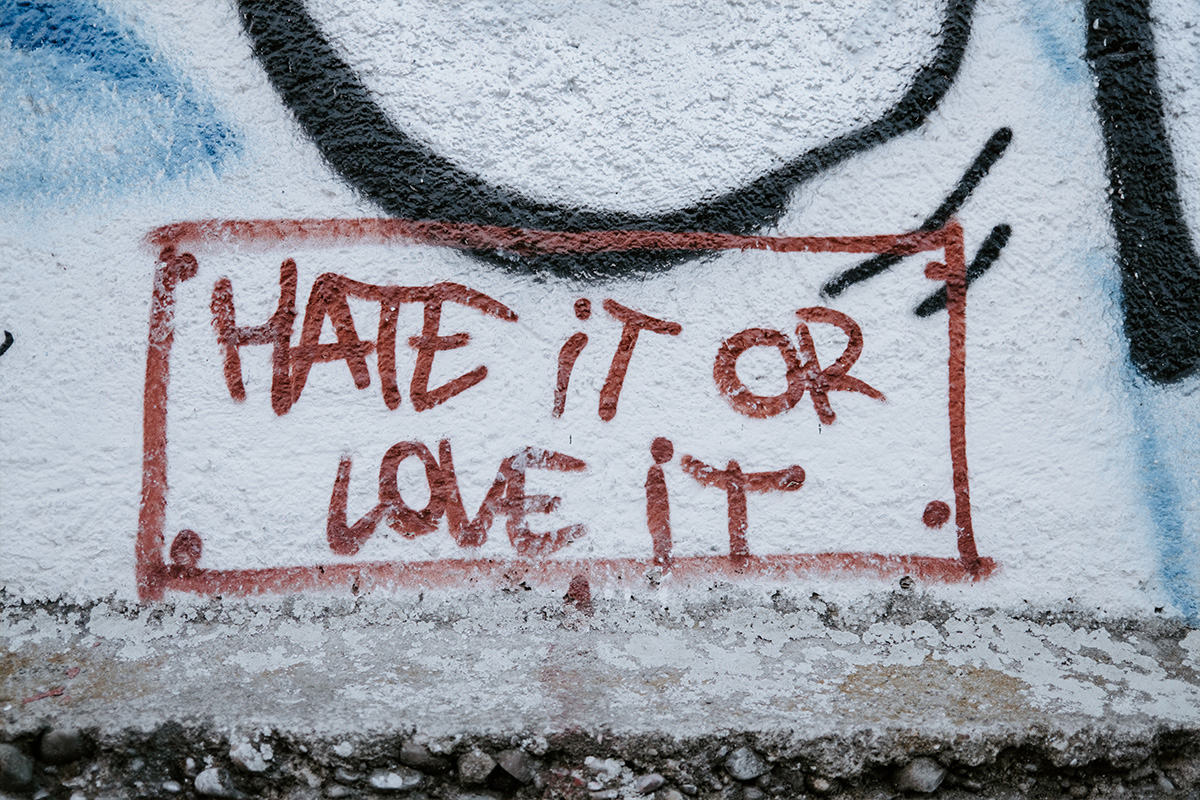 HATE iT OR
LOVE iT